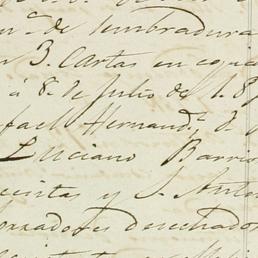 de sembradura
3. Cartas en copia
á 8. de Julio de 18
fael Hernandz. de
Luciano Barrios
y S. Anto
borradores desechados